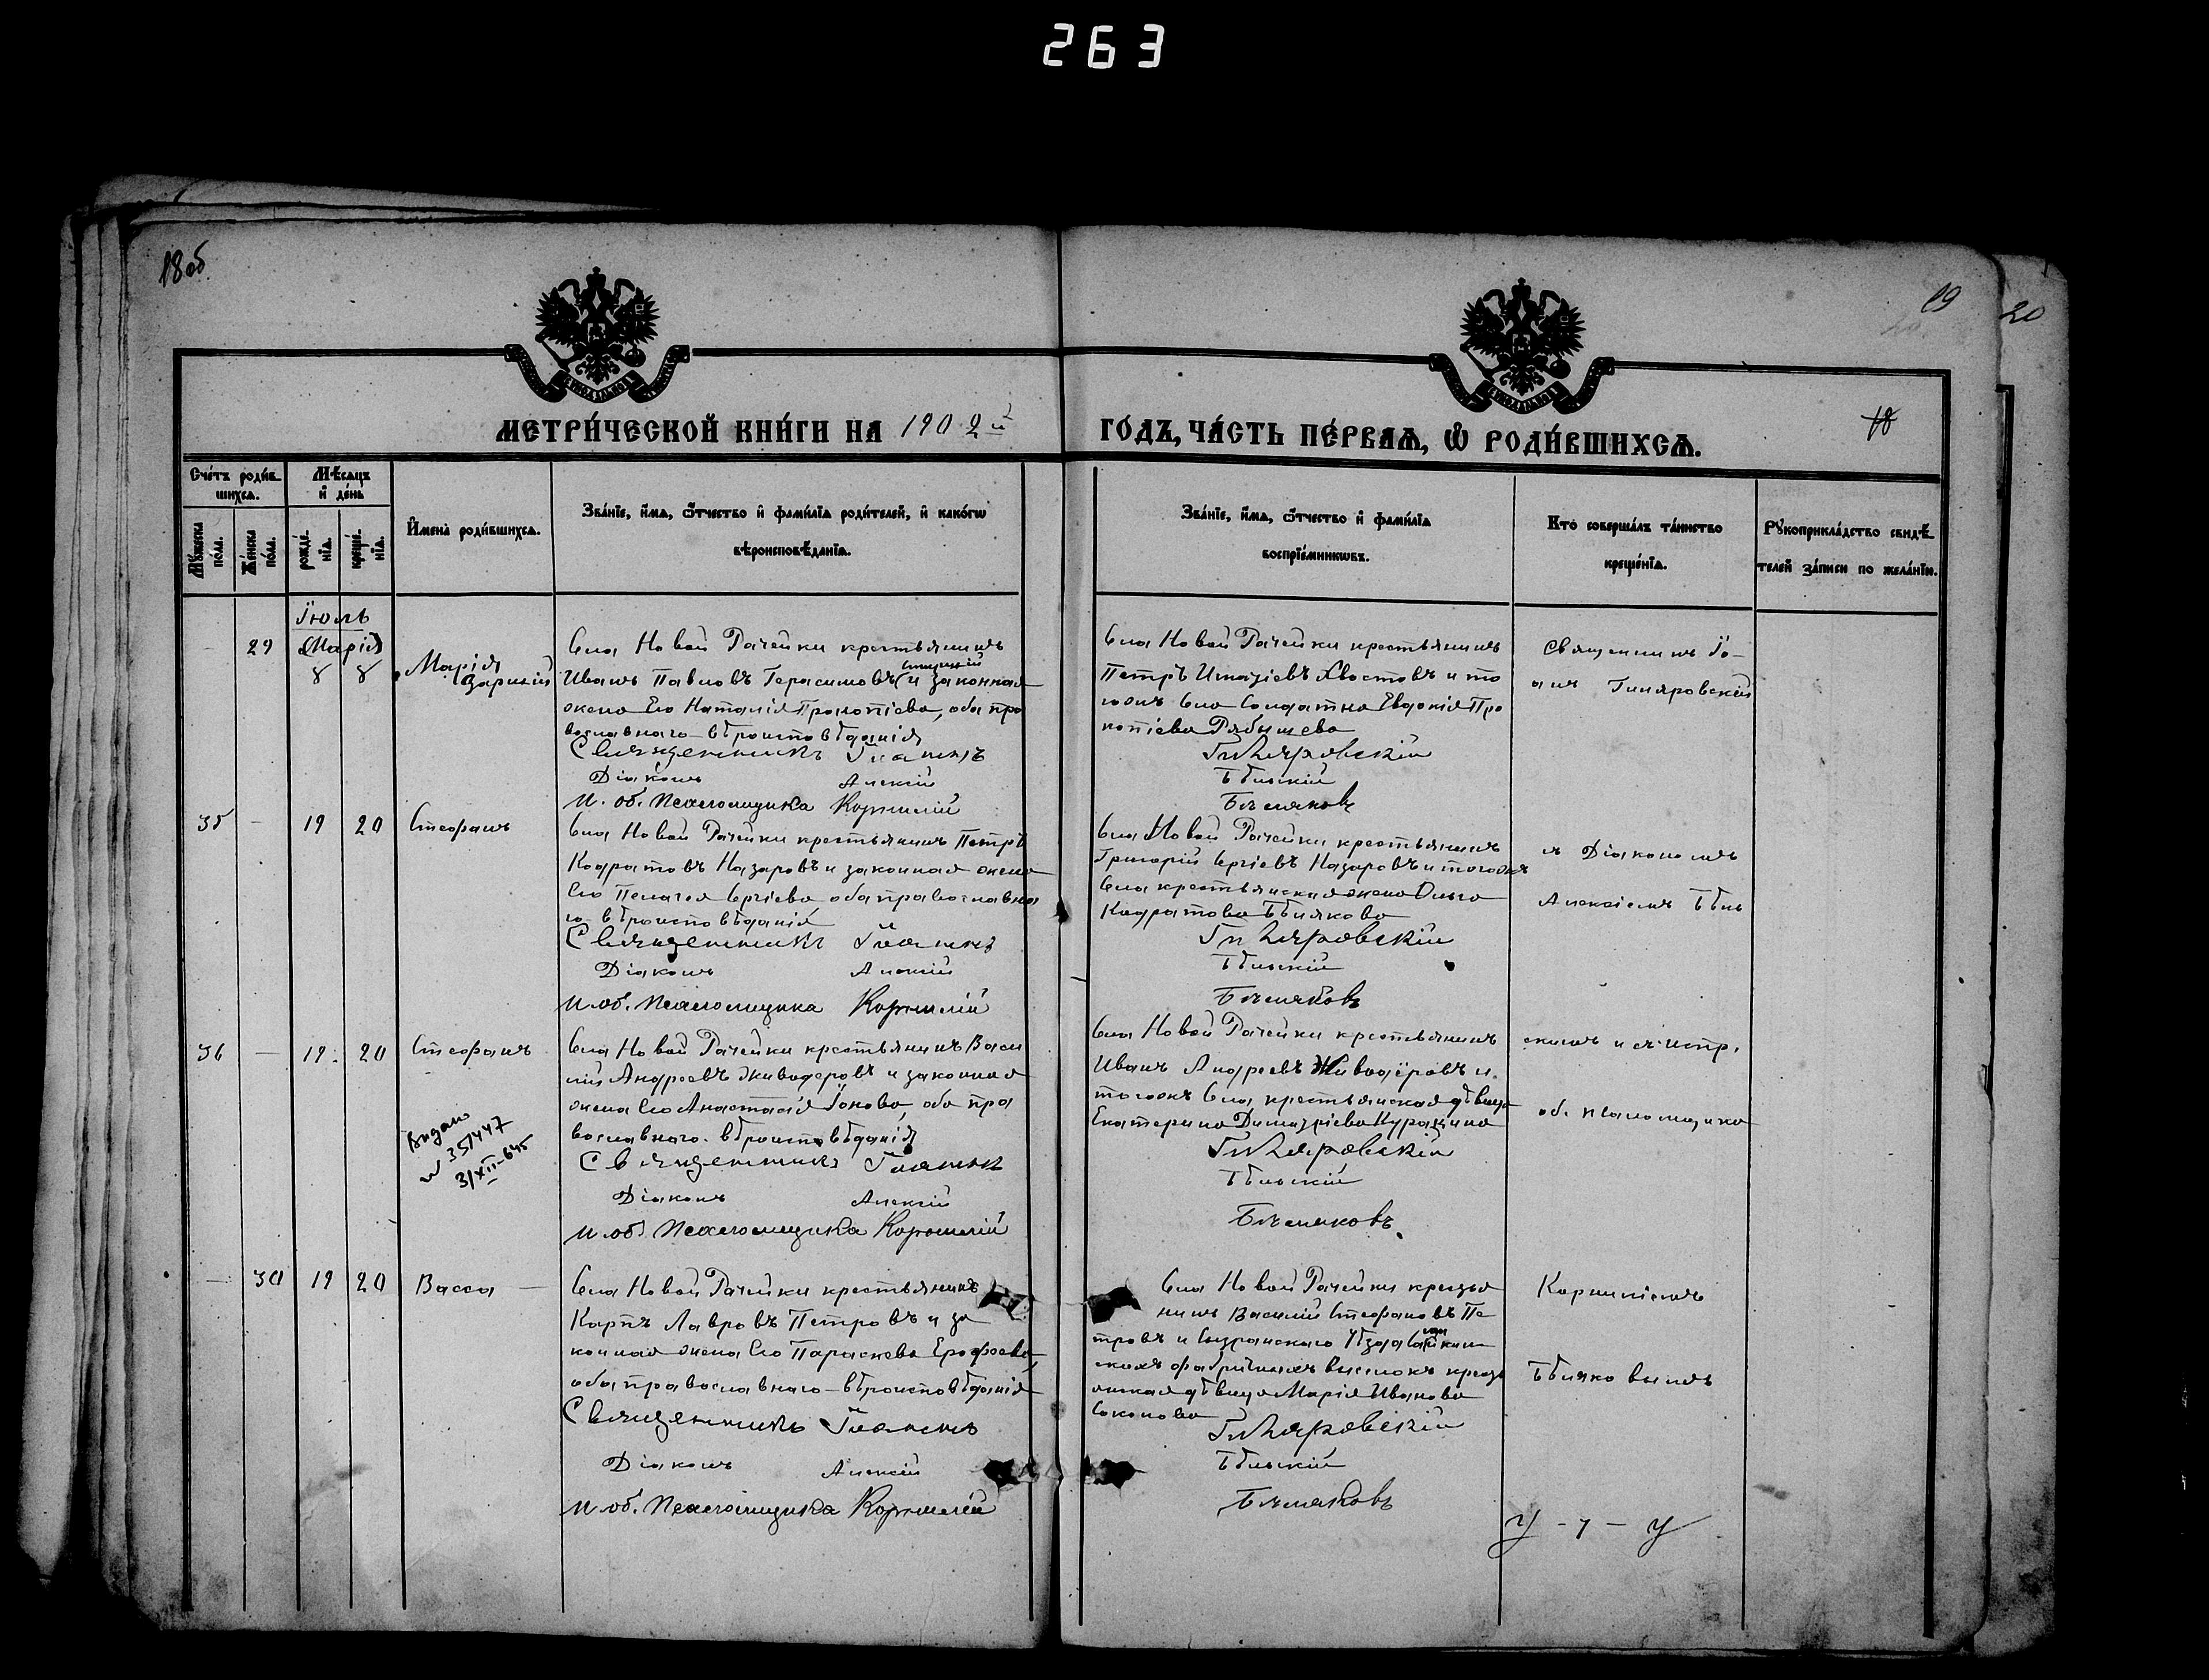 263
18 об.
19
20
18
МЕТРИ́ЧЕСКОЙ КНИ́ГИ НА 1902й
ГО́ДЪ, ЧА́СТЬ ПЕ́РВАѦ, Ѡ РОДИ́ВШИХСѦ.
Сче́тъ роди́в-
шихсѧ.
Мѣ́сѧцъ
и҆ де́нь
Мꙋ́жеска
по́ла.
Же́нска
по́ла.
рожде́-
нїѧ.
креще́-
нїѧ.
И҆мена̀ роди́вшихсѧ.
Зва́нїе, и҆́мѧ, ѻ҆́тчество и҆ фами́лїѧ роди́телей, и҆ како́гѡ
вѣроисповѣ́данїѧ.
Зва́нїе, и҆́мѧ, ѻ҆́тчество и҆ фами́лїѧ
воспрїе́мникѡвъ.
Кто̀ соверша́лъ та́инство
креще́нїѧ.
Рꙋкоприкла́дство свидѣ́-
телей за́писи по жела́нїю.
Іюль
29
(Марія)
8 8
Марія
Села Новой Рачейки крестьянинъ
Иванъ Павловъ Герасимовъ и законная
жена его Наталія Прокопіева, оба пра
вославнаго вѣроисповѣданія
Священникъ Іоаннъ
Діаконъ Алексій
И. об. Псаломщика Корнилій
Села Новой Рачейки крестьянинъ
Петръ Игнатіевъ Хвостовъ и то
гоже села солдатка Евдокія Про
копіева Рябышева
Гиляровскій
Бѣльскій
Бѣляковъ
Священникъ Іо-
аннъ Гиляровскій
35 - 19 20 Стефанъ
Села Новой Рачейки крестьянинъ Петръ
Кодратовъ Назаровъ и законная жена
его Пелагея Сергіева оба православна
го вѣроисповѣданія
Священникъ Іоаннъ
Діаконъ Алексій
И. об. Псаломщика Корнилій
Села Новой Рачейки крестьянинъ
Григорій Сергіевъ Назаровъ и тогоже
села крестьянская жена Ольга
Кодратова Бѣлякова
Гиляровскій
Бѣльскій
Бѣляковъ
съ Діакономъ
Алексіемъ Бѣль
36 - 19 20 Стефанъ
Выдано
№ 351447
3/XII-645
Села Новой Рачейки крестьянинъ Васи
лій Андреевъ Живодеровъ и законная
жена его Анастасія Іонова, оба пра
вославнаго вѣроисповѣданія
Священникъ Іоаннъ
Діаконъ Алексій
И. об. Псаломщика Корнилій
Села Новой Рачейки крестьянинъ
Иванъ Андреевъ Живодёровъ и
тогоже села крестьянская дѣвица
Екатерина Димитріева Куракина
Гиляровскій
Бѣльскій
Бѣляковъ
скимъ и съ испр.
об. псаломщика
- 30 19 20 Васса -
Села Новой Рачейки крестьянинъ
Карпъ Лавровъ Петровъ и за
конная жена его Параскева Ерофеева,
оба православнаго вѣроисповѣданія
Священникъ Іоаннъ
Діаконъ Алексій
И. об. Псаломщика Корнилій
Села Новой Рачейки кресья
нинъ Василій Стефановъ Пе
тровъ и Сызранскаго Уѣзда
фабричныхъ выселокъ кресь
янская дѣвица Марія Иванова
Гиляровскій
Бѣльскій
Бѣляковъ
Корниліемъ
Бѣляковымъ